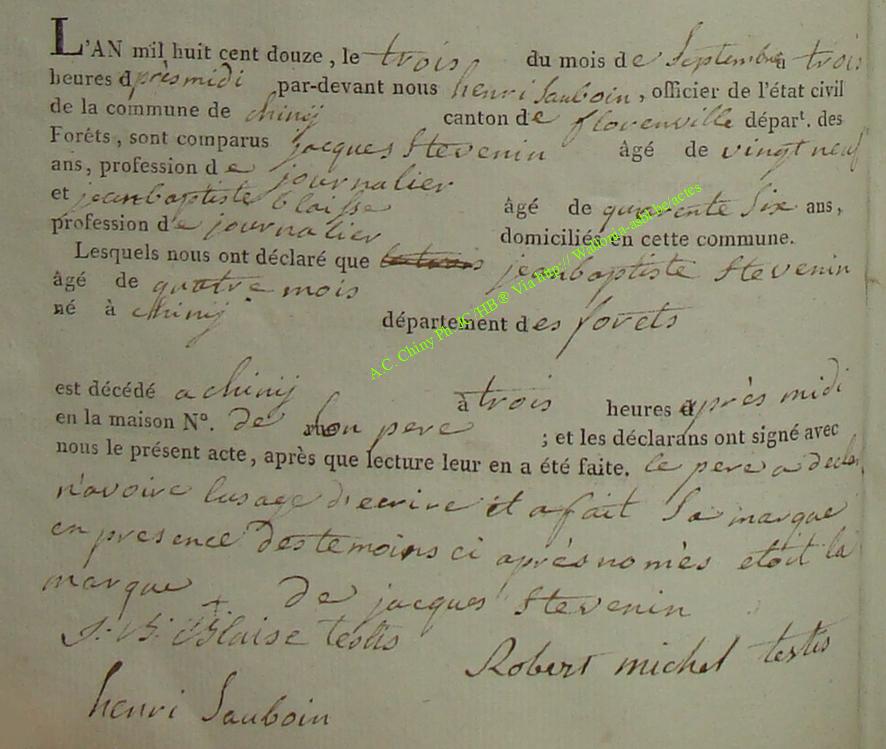 L'AN mil huit cent douze, le trois du mois de Septembre a trois
heures d'près midi par-devant nous henri Sauboin, officier de l'état civil
de la commune de chinij canton de florenville dépar<sup>t</sup>. des
Forêts, sont comparus jacques Stevenin âgé de vingt neuf
ans, profession de journalier
et jeanbaptiste blaisse âgé de quarente Six ans,
profession de journalier domiciliés en cette commune.
Lesquels nous ont déclaré que jeanbaptiste Stevenin
âgé de quatre mois
né à chinij département des forets
est décédé a chinij à trois heures d'après midi
en la maison N°. de Son pere ; et les déclarans ont signé avec
nous le présent acte, après que lecture leur en a été faite. le pere a declar
n'avoire lusage d'ecrire et a fait Sa marque
en presence des temoins ci après nomès etoit la
marque + de jacques Stevenin
J. B. Blaise testis
Robert michel testis
henri Sauboin
A.C. Chiny Ph. JC/HB® Via http:// Wallonia-asbl.be/actes